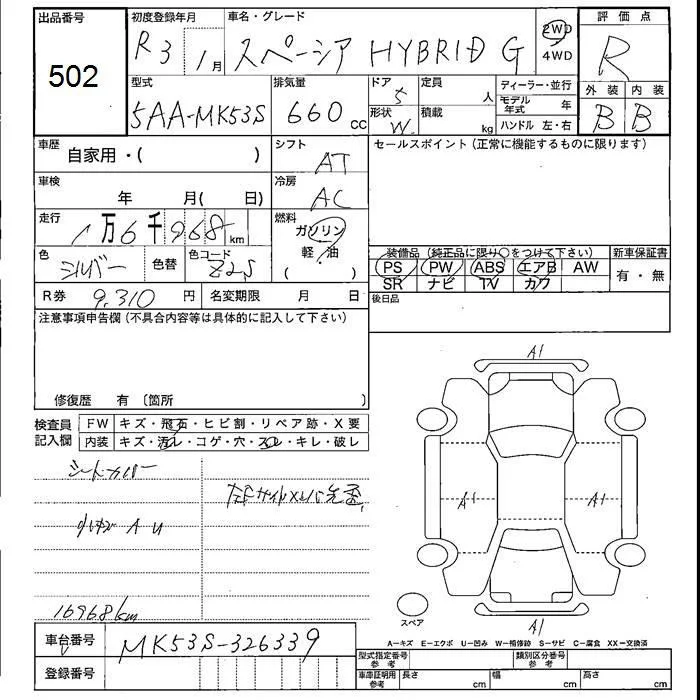 出品番号
502
初度登録年月
R3 1月
車名・グレード
スペーシア HYBRID G
2WD
4WD
評価点
R
型式
5AA-MK53S
排気量
660 cc
ドア
5
形状
W
定員
人
積載
kg
ディーラー・並行
モデル年式 年
ハンドル 左・右
外装
B
内装
B
車歴
自家用・( )
シフト
AT
セールスポイント(正常に機能するものに限ります)
車検
年 月( 日)
冷房
AC
走行
1万6千968km
燃料
ガソリン
軽・油
色
シルバー
色替
色コード
Z2S
装備品(純正品に限り○をつけて下さい)
新車保証書
PS PW ABS エアB AW
SR ナビ TV カワ
有・無
R券 9,310 円
名変期限 月 日
後日品
注意事項申告欄(不具合内容等は具体的に記入して下さい)
修復歴 有〔箇所 〕
検査員記入欄
FW キズ・飛石・ヒビ割・リペア跡・X要
内装 キズ・汚レ・コゲ・穴・スレ・キレ・破レ
シートカバー
A U
16968km
A1
A1
A1
A1
スペア
A-キズ E-エクボ U-凹み W-補修跡 S-サビ C-腐食 XX-交換済
車台番号
MK53S-326339
登録番号
型式指定番号
参考
類別区分番号
参考
車庫証明用
参考
長さ cm
幅 cm
高さ cm